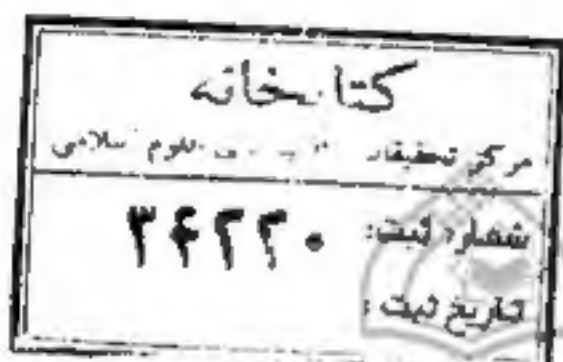 کتابخانه
مرکز تحقیقات علوم اسلامی
شماره ثبت: ۳۴۲۲۰
تاریخ ثبت: